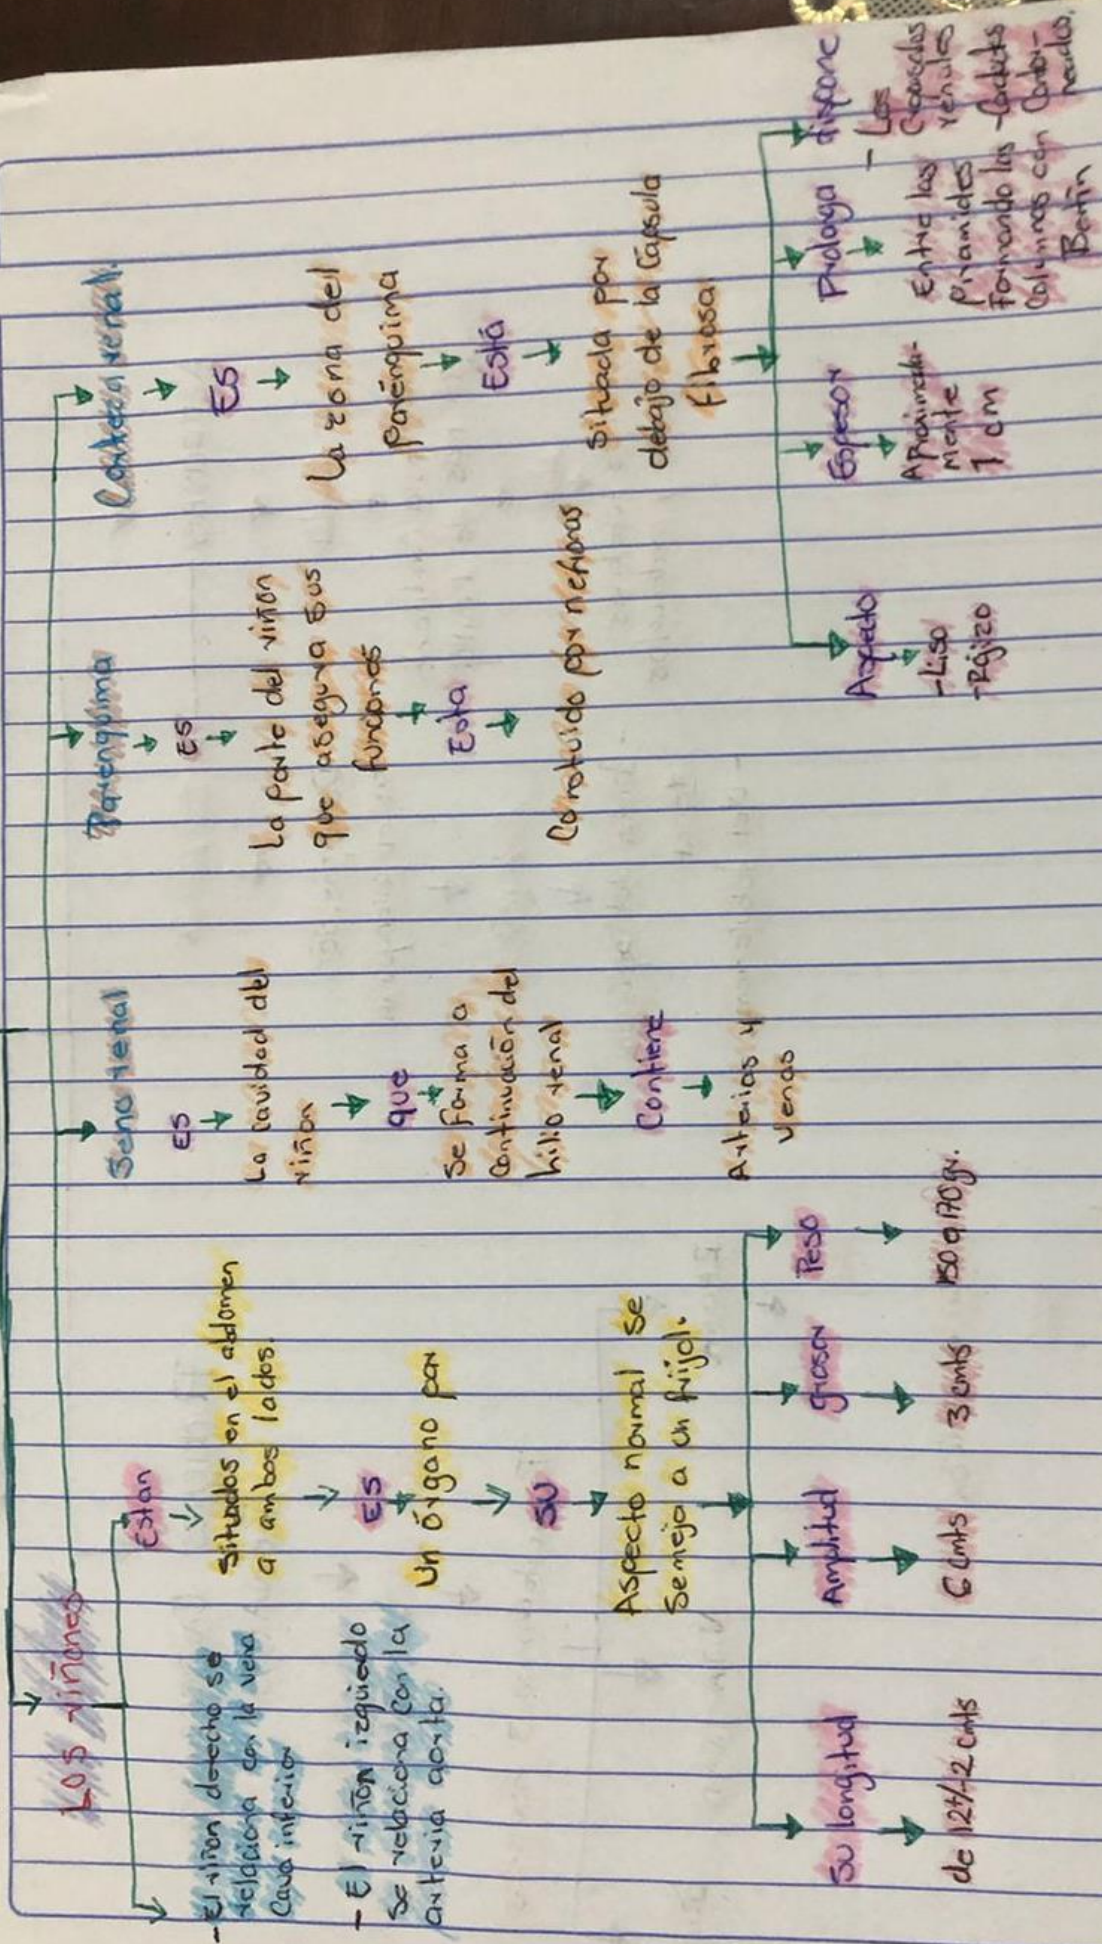 Los riñones
- El riñon derecho se
relaciona con la vena
Cava inferior
- El riñon izquiedo
Se relaciona con la
arteria aorta.
Estan
Situados en el abdomen
a ambos lados.
ES
Un órgano par
SU
Aspecto normal se
Semeja a un frijol.
Su longitud
de 12+/-2 cmts
Amplitud
6 cmts
grosor
3 cmts
Peso
150 a 170 gr.
Seno renal
ES
La cavidad del
riñon
que
Se forma a
Continuación del
hilio renal
Contiene
Arterias y
Venas
Parenquima
ES
La parte del riñon
que asegura sus
funciones
Esta
Constuido por nefronas
Corteza renal.
ES
La zona del
Parénquima
Está
Situada por
debajo de la Capsula
fibrosa.
Aspecto
- Liso
- Rójizo
Espesor
Aproximada-
Mente
1 cm
Prologa
Entre las
Piramides
Formando las
Columnas con
Bertin
dispone
- Los
renales